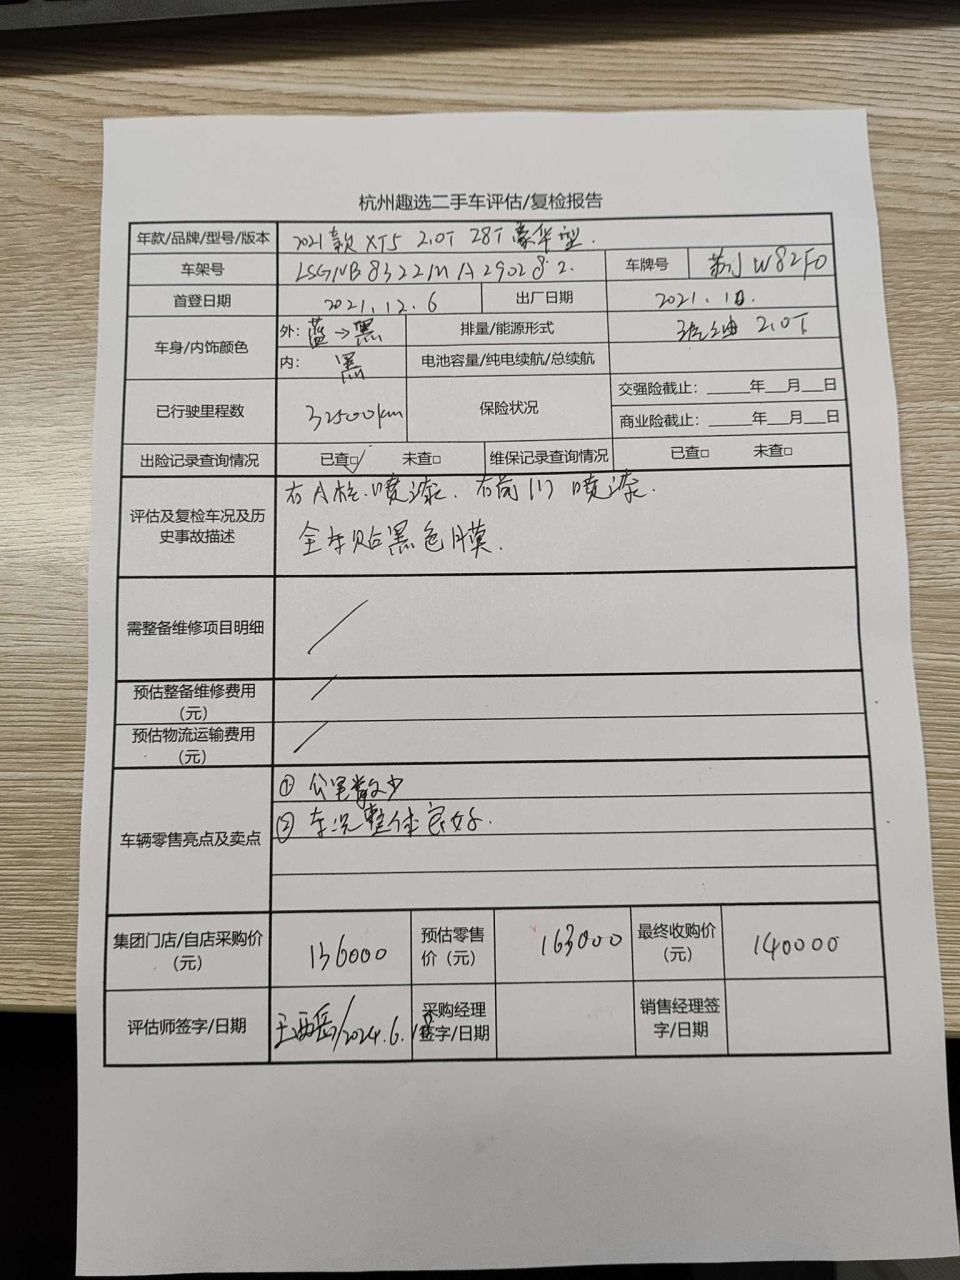 杭州趣选二手车评估/复检报告
年款/品牌/型号/版本 2021款 XT5 2.0T 28T 豪华型.
车架号 LSGNB8322MA290282. 车牌号 苏J W82F0
首登日期 2021.12.6 出厂日期 2021.10.
车身/内饰颜色 外: 蓝→黑 排量/能源形式 汽油 2.0T
内: 黑 电池容量/纯电续航/总续航
已行驶里程数 32500km 保险状况 交强险截止: 年 月 日
商业险截止: 年 月 日
出险记录查询情况 已查☑ 未查□ 维保记录查询情况 已查□ 未查□
评估及复检车况及历史事故描述 右A柱喷漆. 右前门喷漆.
全车贴黑色膜.
需整备维修项目明细 /
预估整备维修费用(元) /
预估物流运输费用(元) /
车辆零售亮点及卖点 ① 公里数少
② 车况整体良好.
集团门店/自店采购价(元) 136000 预估零售价(元) 163000 最终收购价(元) 140000
评估师签字/日期 王西岳/2024.6.18 采购经理签字/日期 销售经理签字/日期